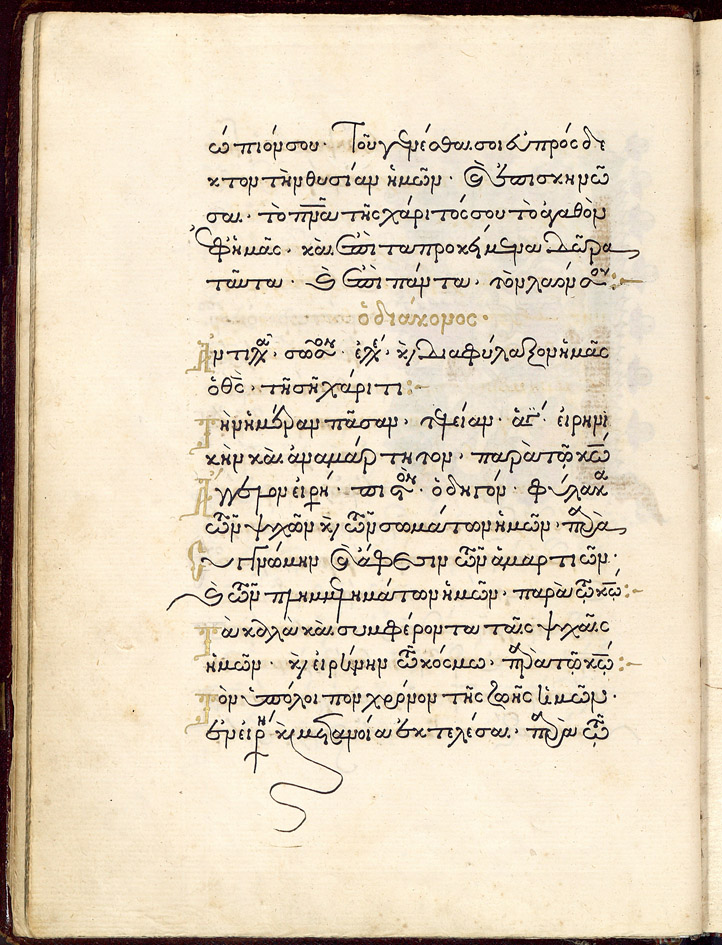 ώπιόν σου· Τοῦ γενέσθαι σοι εὐπρόσδε
κτον τὴν θυσίαν ἡμῶν· καὶ ἐπισκηνῶ
σαι· τὸ πν̅α τῆς χάριτός σου τὸ ἀγαθὸν
ἐφ' ἡμᾶς· καὶ ἐπὶ τα προκείμενα δῶρα
ταῦτα· καὶ ἐπὶ πάντα· τὸν λαόν σου:
ὁ διάκονος·
Ἀντιλ· σῶσον· ἐλέ· κ διαφύλαξον ἡμᾶς
ὁ θς· τῆ σῆ χάριτι:
Τὴν ἡμέραν πᾶσαν· τελείαν· ἁγί· εἰρηνι
κὴν καὶ ἀναμάρτητον· παρὰ τοῦ κυ
Ἄγγελον εἰρή· πιστὸν· ὁδηγόν· φύλακα
τῶν ψυχῶν κ τῶν σωμάτων ἡμῶν· παρὰ
Συγγνώμην καὶ ἄφεσιν τῶν ἁμαρτιῶν·
καὶ τῶν πλημμελημάτων ἡμῶν· παρὰ τοῦ κυ:
Τὰ καλὰ καὶ συμφέροντα ταῖς ψυχαῖς
ἡμῶν· κ εἰρήνην τῶ κόσμω· παρὰ τοῦ κυ:
Τὸν ὑπόλοιπον χρόνον τῆς ζωῆς ἡμῶν·
ἐν εἰρή κ μετανοία ἐκτελέσαι· παρὰ τοῦ